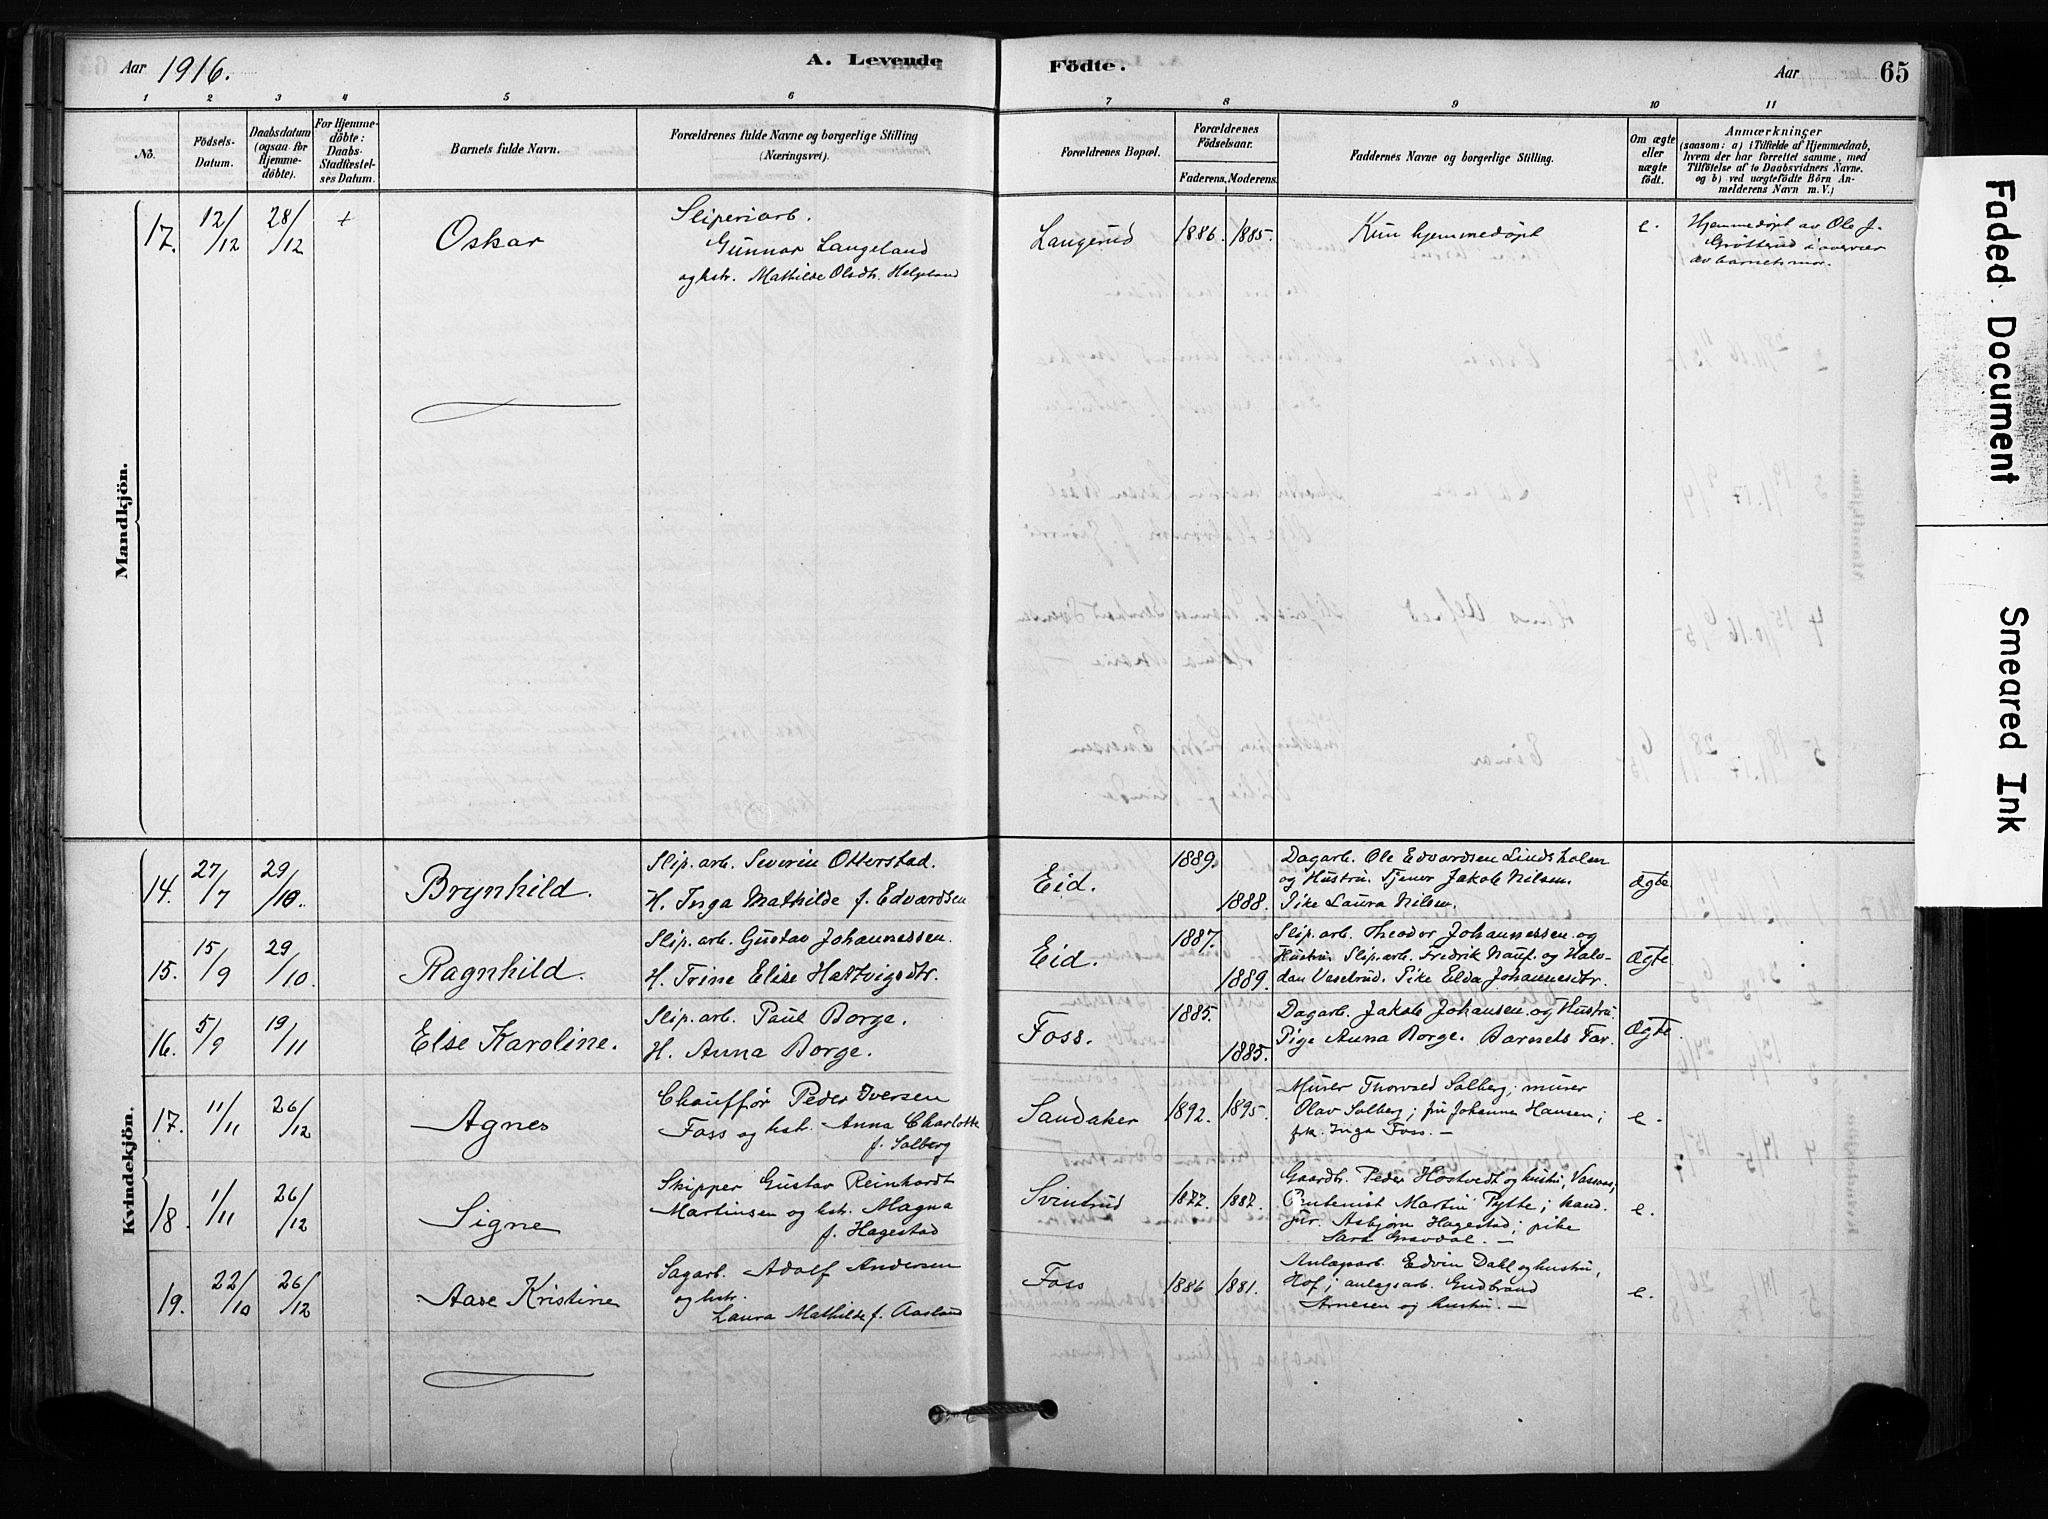 Aar 1916.
A. Levende
Födte.
Aar
65
1 2 3 4 5 6 7 8 9 10 11
No.
Födsels-
Datum.
Daabsdatum
(ogsaa for
Hjemme-
döbte).
For Hjemme-
döbte:
Daabs-
Stadfæstel-
ses Datum.
Barnets fulde Navn.
Forældrenes fulde Navne og borgerlige Stilling
(Næringsvei).
Forældrenes Bopæl.
Forældrenes
Födselsaar.
Faderens. Moderens.
Faddernes Navne og borgerlige Stilling.
Om ægte
eller
uægte
födt.
Anmærkninger
(saasom: a) i Tilfælde af Hjemmedaab,
hvem der har forrettet samme, med
Tilföielse af to Daabsvidners Navne.
og b) ved uægtefödte Börn An-
melderens Navn m. V.)
Mandkjön.
17. 12/12 28/12 +
Oskar
Sliperiarb.
Gunnar Langeland
og hstr. Mathilde Olsdtr. Helgeland
Langerud
1886. 1885.
Kun hjemmedøpt
e.
Hjemmedøpt av Ole J.
Grøtterud i overvær
av barnets mor.
Kvindekjön.
14. 27/7 29/10.
Brynhild.
Slip. arb. Severin Otterstad.
H. Inga Mathilde f. Edvardsen
Eid.
1889.
1888.
Dagarb. Ole Edvardsen Lindsholm
og Hustru. Tjener Jakob Nilsen.
Pike Laura Nilsen.
Ægte
15. 15/9 29/10.
Ragnhild.
Slip. arb. Gustav Johannessen.
H. Trine Elise Hartvigsdtr.
Eid.
1887.
1889.
Slip. arb. Theodor Johannessen og
Hustru Slip. arb. Fredrik Nauf. og Halv-
dan Veselrud. Pike Elda Johannesdtr.
Ægte
16. 5/9 19/11
Else Karoline.
Slip. arb. Paul Borge.
H. Anna Borge.
Foss.
1885.
1885.
Dagarb. Jakob Johansen og Hustru.
Pige Anna Borge. Barnets Far.
Ægte.
17. 11/11 26/12
Agnes
Chauffør Peder Iversen
Foss og hstr. Anna Charlotte
f. Solberg
Sandaker
1892. 1895.
Murer Thorvald Solberg; murer
Olav Solberg; fru Johanne Hansen;
frk. Inga Foss. —
e.
18. 1/11 26/12
Signe
Skipper Gustav Reinhardt
Martinsen og hstr. Magna
f. Hagestad
Svinrud
1877. 1887.
Gaardbr. Peder Hostvedt og hustru, Vassaas;
Martin Bytte; kand.
jur. Asbjørn Hagestad; pike
Sara Gravdal. —
e.
19. 22/10 26/12
Aase Kristine
Sagarb. Adolf Andersen
og hstr.
Laura Mathilde f. Aasland
Foss
1886 1881.
Anlægsarb. Edvin Dahl og hustru,
Hof; anlægsarb. Gudbrand
Arnesen og hustru. —
e.
Faded Document
Smeared Ink